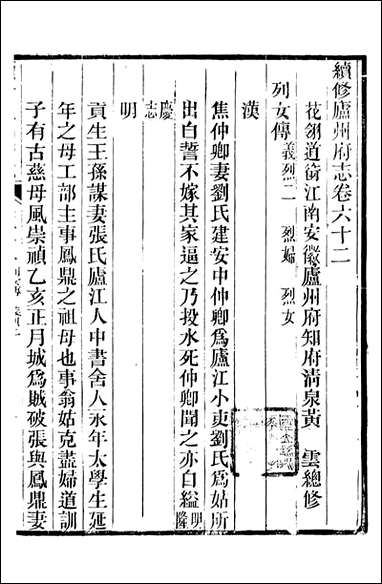 續修廬州府志卷六十二
花翎道銜江南安徽廬州府知府清泉黃 雲總修
列女傳 義烈二 烈婦 烈女
漢
焦仲卿妻劉氏建安中仲卿爲廬江小吏劉氏爲姑所
出自誓不嫁其家逼之乃投水死仲卿聞之亦自縊 明隆
慶志
明
貢生王孫謀妻張氏廬江人中書舍人永年太學生延
年之母工部主事鳳鼎之祖母也事翁姑克盡婦道訓
子有古慈母風崇禎乙亥正月城爲賊破張與鳳鼎妻